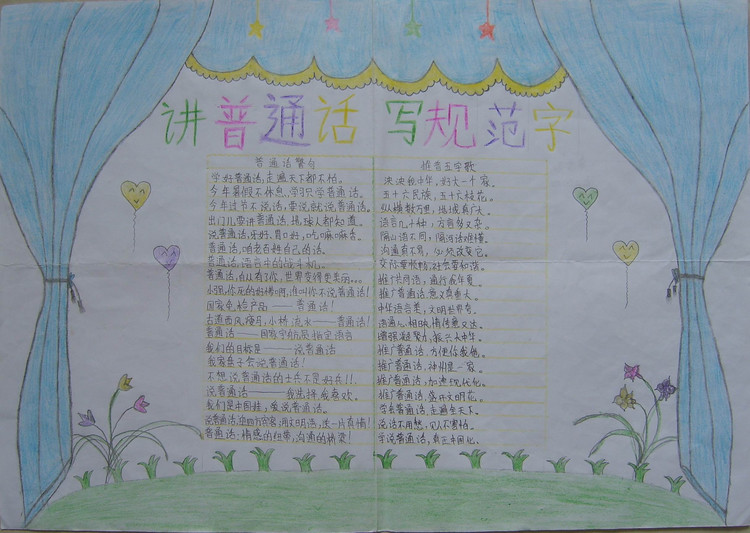 讲普通话 写规范字
普通话警句
学好普通话,走遍天下都不怕。
今年暑假不休息,学习只学普通话。
今年过节不说话,要说就说普通话。
出门儿要讲普通话,地球人都知道。
说普通话,牙好,胃口好,吃嘛嘛香。
普通话,咱老百姓自己的话。
普通话,语言中的战斗机。
普通话,自从有了你,世界变得更美丽。。。
小强,你死的好惨啊,谁叫你不说普通话!
国家免检产品——普通话!
古道西风瘦马,小桥流水——普通话!
普通话——国家宇航员指定语言
我们的目标是——说普通话
我家盘子会说普通话!
不想说普通话的士兵不是好兵!!
说普通话——我选择,我喜欢。
我们是中国娃,爱说普通话。
说普通话,迎四方宾客;用文明语,送一片真情!
普通话:情感的纽带,沟通的桥梁!
推普五字歌
泱泱我中华,好大一个家。
五十六民族,五十六枝花。
纵横数万里,地域真广大。
语言几十种,方言多又杂。
隔山语不同,隔河话难懂。
沟通真不易,必须改变它。
交际要顺畅,社会要和谐。
推广共同语,通行在华夏。
推广普通话,意义真重大。
中华语言美,文明世界夸。
语通心相映,情传意又达。
增强凝聚力,振兴大中华。
推广普通话,方便你我他。
推广普通话,神州是一家。
推广普通话,加速现代化。
推广普通话,盛开文明花。
学会普通话,走遍全天下。
说话不用愁,见人不害怕。
学说普通话,真正中国化。